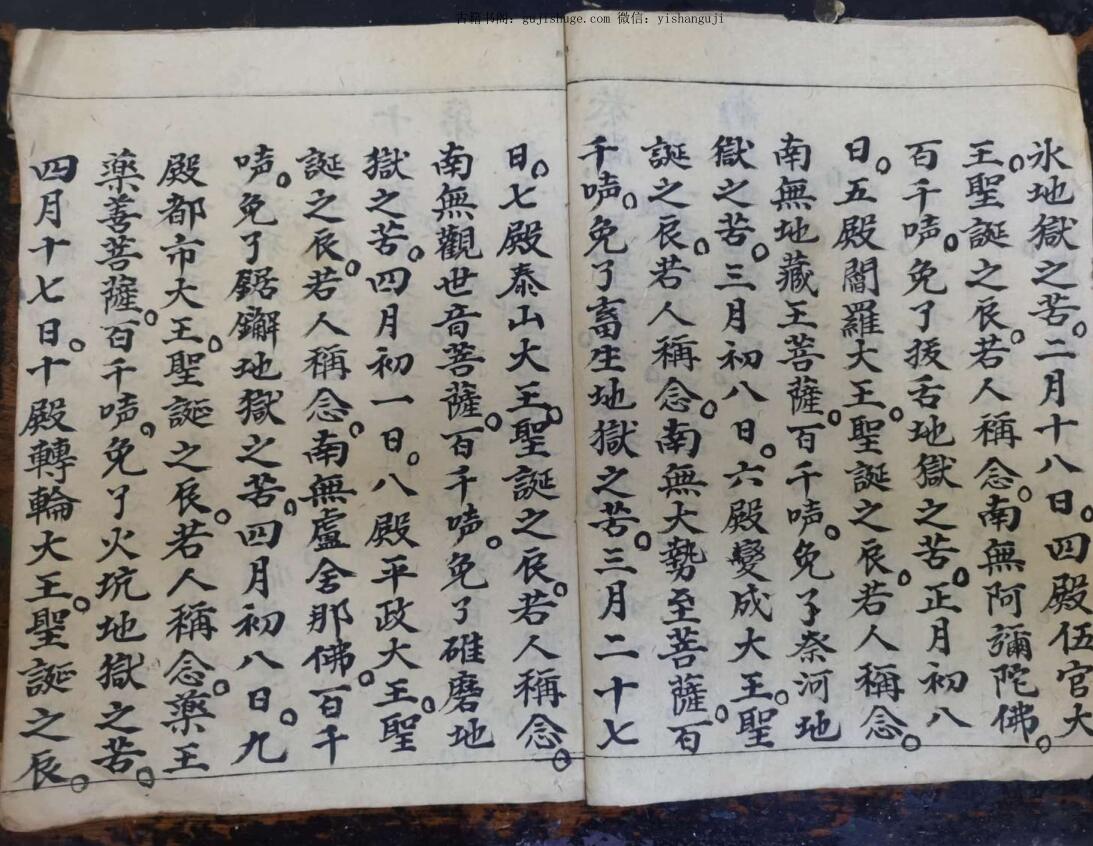 古籍书阁：gujishuge.com 微信：yishanguji
氷地獄之苦。二月十八日。四殿伍官大
王。聖誕之辰。若人稱念。南無阿彌陀佛。
百千唃。免了拔舌地獄之苦。正月初八
日。五殿閻羅大王。聖誕之辰。若人稱念。
南無地藏王菩薩。百千唃。免了奈河地
獄之苦。三月初八日。六殿變成大王。聖
誕之辰。若人稱念。南無大勢至菩薩。百
千唃。免了畜生地獄之苦。三月二十七
日。七殿泰山大王。聖誕之辰。若人稱念。
南無觀世音菩薩。百千唃。免了碓磨地
獄之苦。四月初一日。八殿平政大王。聖
誕之辰。若人稱念。南無盧舍那佛。百千
唃。免了鋸鐦地獄之苦。四月初八日。九
殿都市大王。聖誕之辰。若人稱念。藥王
藥善菩薩。百千唃。免了火坑地獄之苦。
四月十七日。十殿轉輪大王。聖誕之辰。